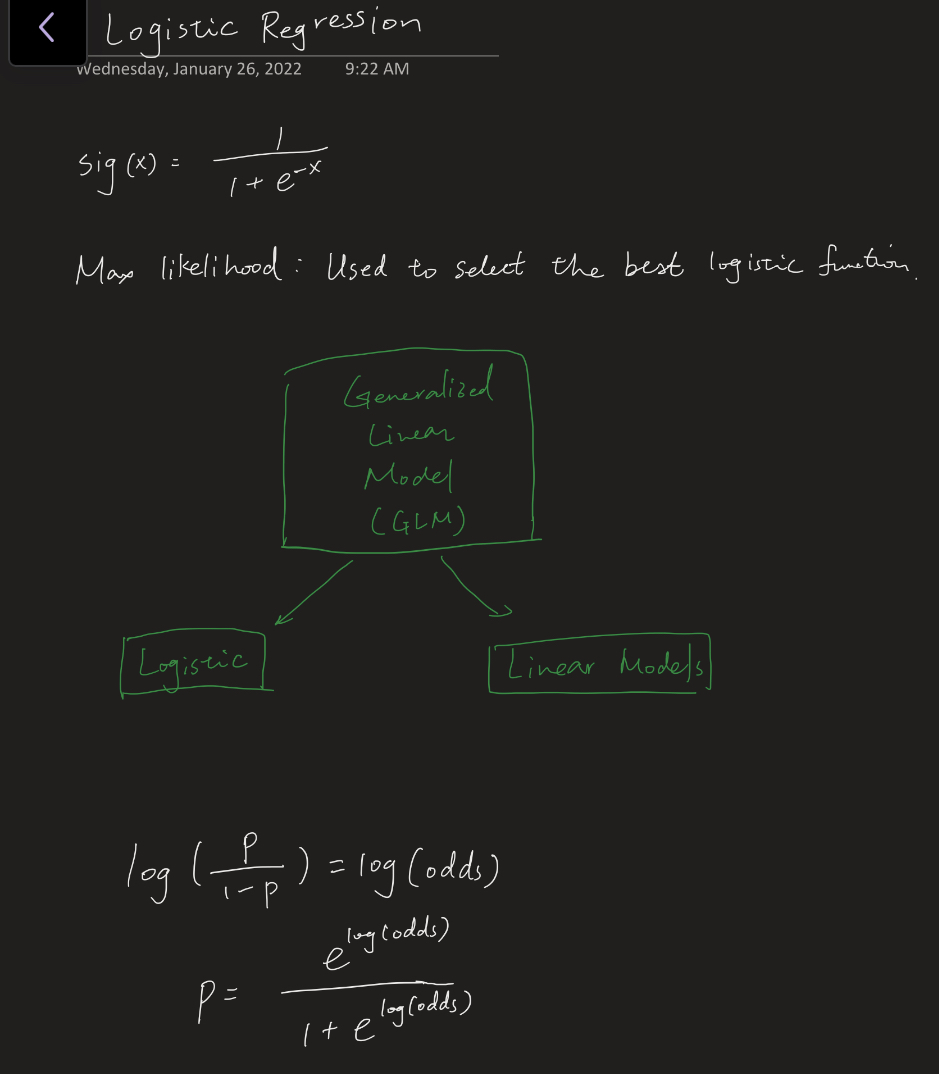 Logistic Regression
Wednesday, January 26, 2022 9:22 AM
sig(x) = 1 / (1 + e^-x)
Max likelihood: Used to select the best logistic function.
Generalized
Linear
Model
(GLM)
Logistic
Linear Models
log(p / (1-p)) = log(odds)
p = e^log(odds) / (1 + e^log(odds))